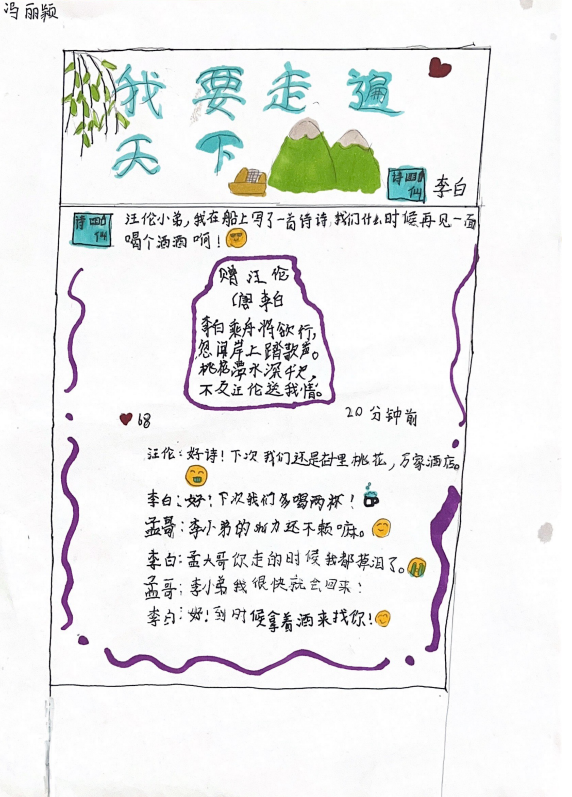 冯丽颖
我要走遍
天下
诗仙
李白
诗仙
汪伦小弟,我在船上写了一首诗诗,我们什么时候再见一面
喝个酒酒啊!
赠汪伦
(唐)李白
李白乘舟将欲行,
忽闻岸上踏歌声。
桃花潭水深千尺,
不及汪伦送我情。
68
20分钟前
汪伦:好诗!下次我们还是台里桃花,万家酒店。
李白:好!下次我们多喝两杯!
孟哥:李小弟的物力还不赖嘛。
李白:孟大哥你走的时候我都掉泪了。
孟哥:李小弟我很快就会回来!
李白:好!到时候拿着酒来找你!